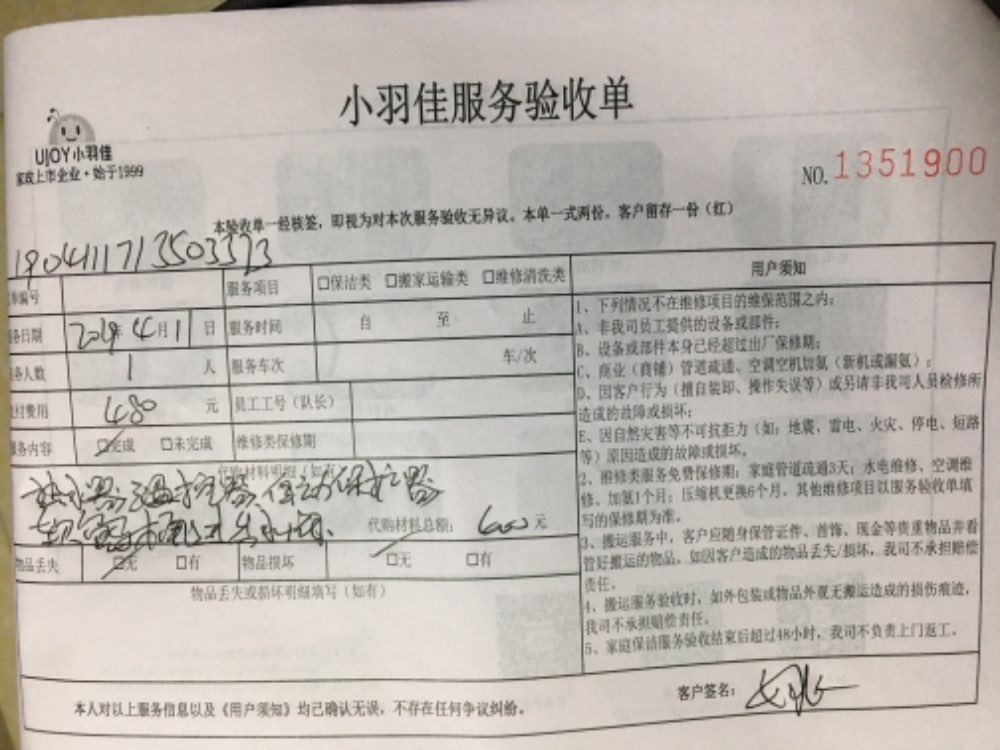 小羽佳服务验收单
UJOY小羽佳
家政上市企业·始于1999
NO. 1351900
本验收单一经核签,即视为对本次服务验收无异议。本单一式两份,客户留存一份(红)
1904111713503373
单编号 服务项目 □保洁类 □搬家运输类 □维修清洗类
务日期 2019年4月11日 服务时间 自 至 止
务人数 1 人 服务车次 车/次
付费用 480 元 员工工号(队长)
务内容 ☑完成 □未完成 维修类保修期
代购材料明细(如有
热水器温控器
代购材料总额: 600 元
物品丢失 ☑无 □有 物品损坏 ☑无 □有
物品丢失或损坏明细填写(如有)
用户须知
1、下列情况不在维修项目的维保范围之内:
A、非我司员工提供的设备或部件;
B、设备或部件本身已经超过出厂保修期;
C、商业(商铺)管道疏通、空调空机加氨(新机或漏氨);
D、因客户行为(擅自装卸、操作失误等)或另请非我司人员检修所
造成的故障或损坏;
E、因自然灾害等不可抗拒力(如:地震、雷电、火灾、停电、短路
等)原因造成的故障或损坏。
2、维修类服务免费保修期:家庭管道疏通3天;水电维修、空调维
修、加氨1个月;压缩机更换6个月。其他维修项目以服务验收单填
写的保修期为准。
3、搬运服务中,客户应随身保管证件、首饰、现金等贵重物品并看
管好搬运的物品。如因客户造成的物品丢失/损坏,我司不承担赔偿
责任。
4、搬运服务验收时,如外包装或物品外观无搬运造成的损伤痕迹,
我司不承担赔偿责任。
5、家庭保洁服务验收结束后超过48小时,我司不负责上门返工。
本人对以上服务信息以及《用户须知》均已确认无误,不存在任何争议纠纷。
客户签名: